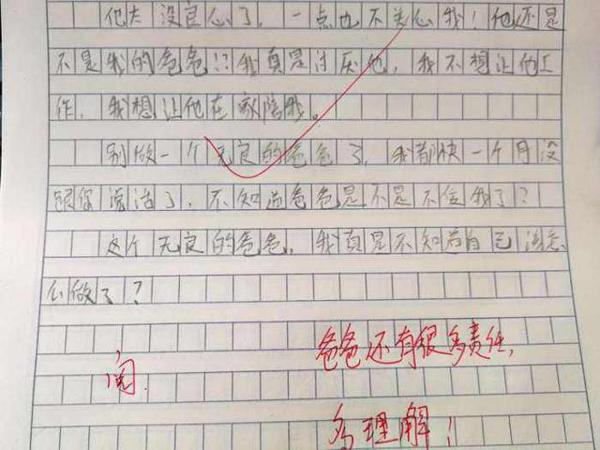 他太没良心了，一点也不关心我！他还是
不是我的爸爸！？我真是讨厌他，我不想让他工
作，我想让他在家陪我。
别做一个无良的爸爸了，我都快一个月没
跟你说话了，不知道爸爸是不是不信我了？
这个无良的爸爸，我真是不知道自己该怎
么做了？
阅.
爸爸还有很多责任，
多理解！